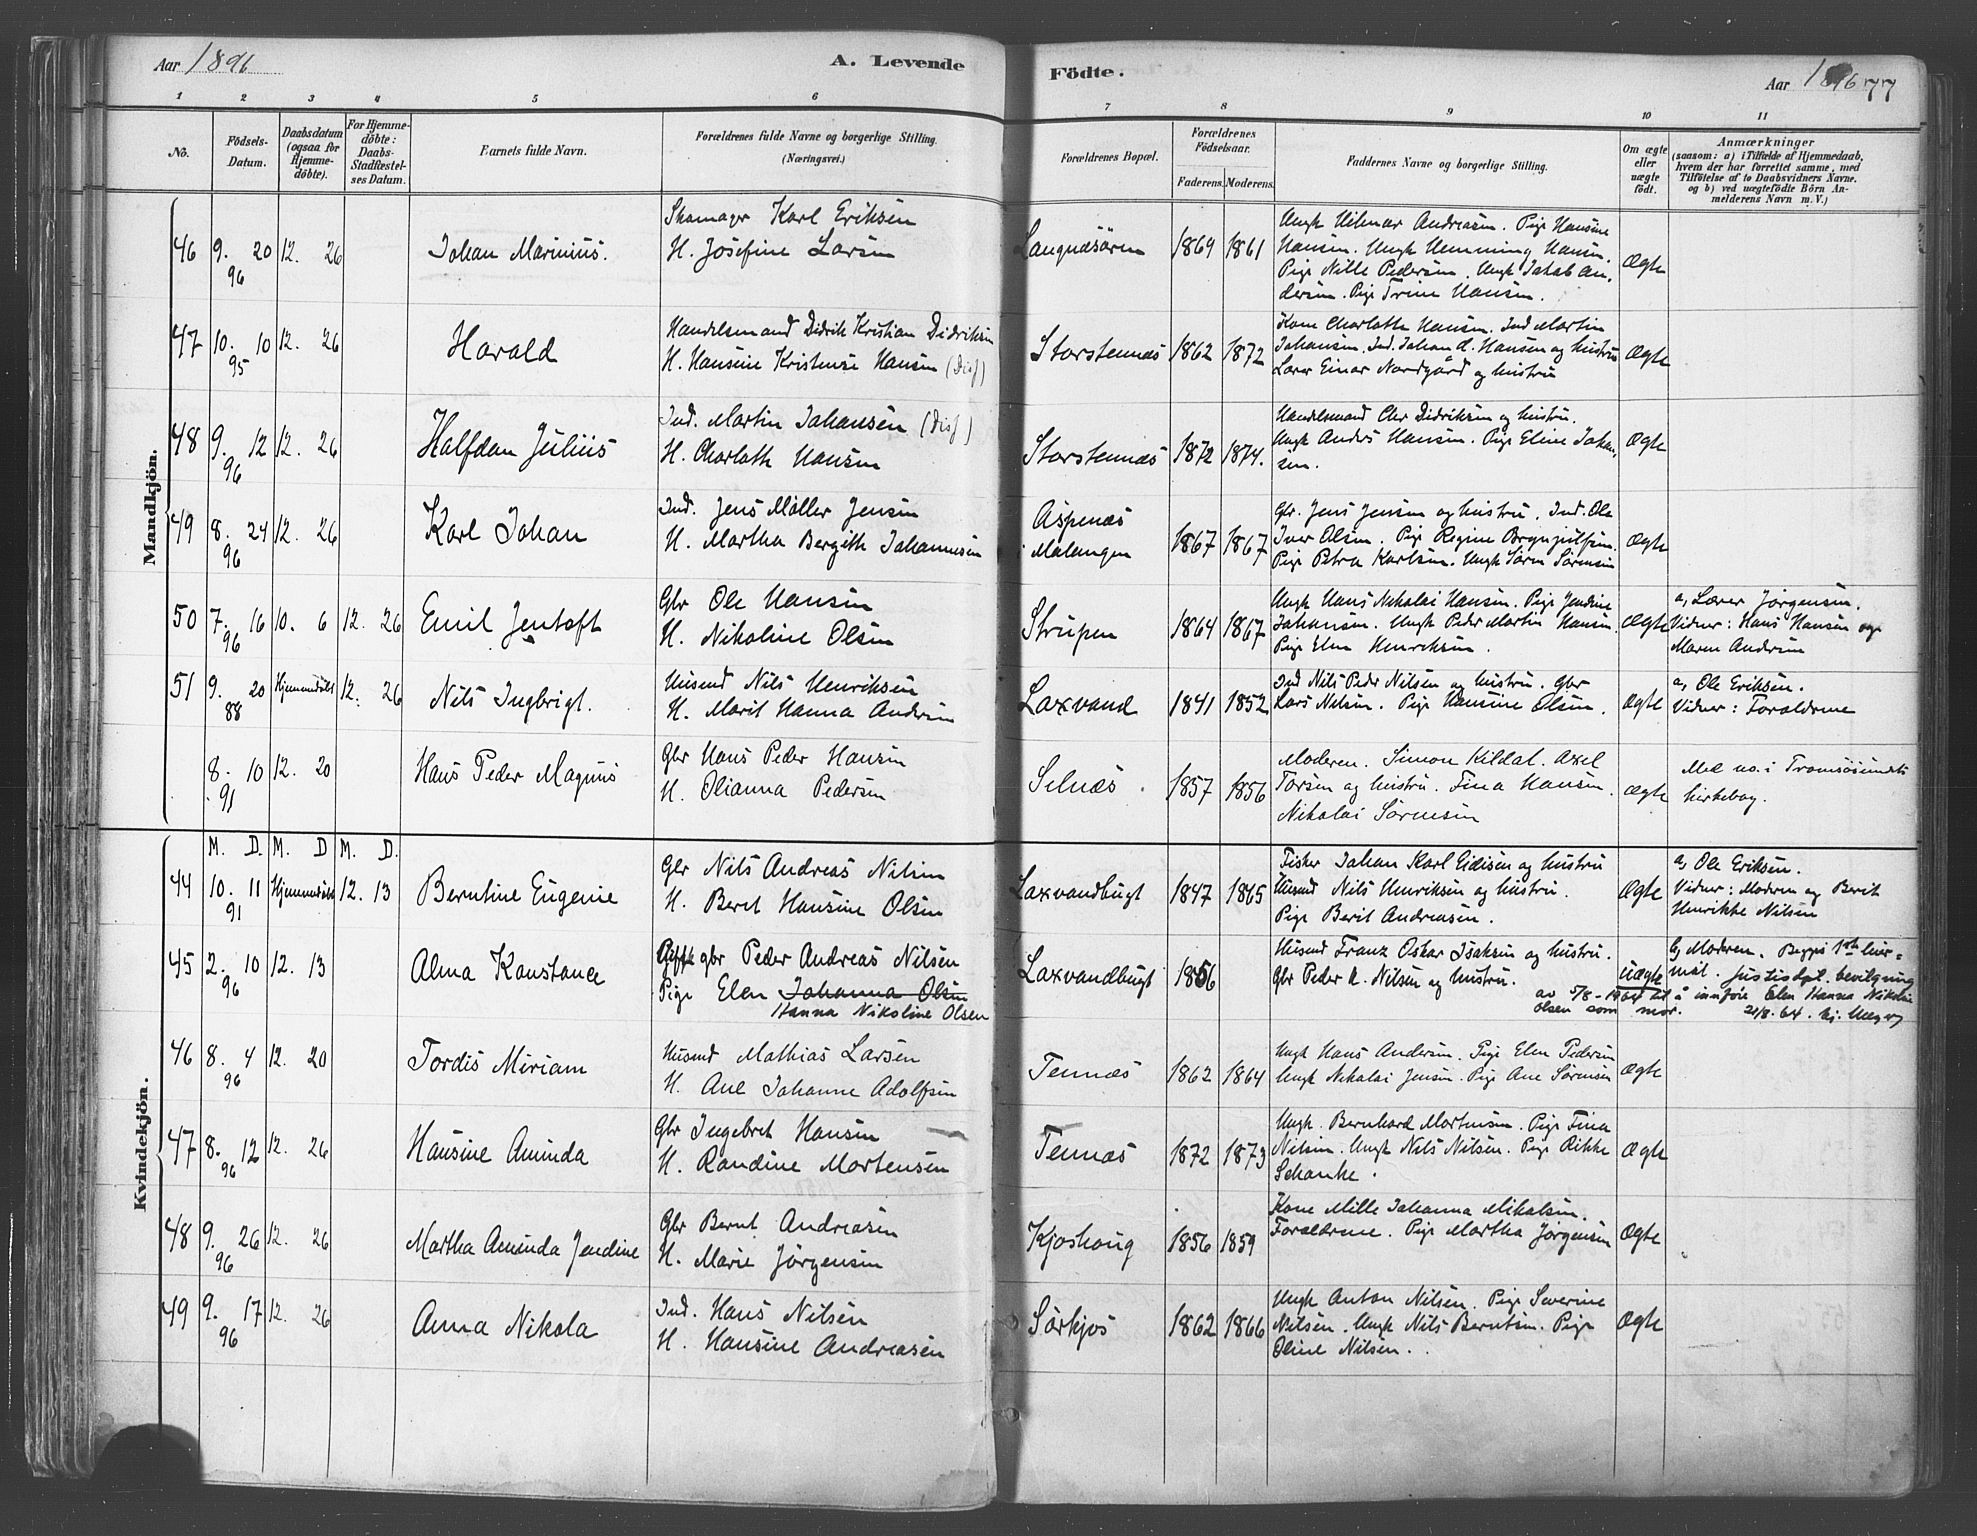 Aar 1896
A. Levende
Födte.
Aar 1896
77
1 2 3 4 5 6 7 8 9 10 11
No.
Födsels-Datum.
Daabsdatum (ogsaa for Hjemme-döbte).
For Hjemme-döbte: Daabs-Stadfæstel-ses Datum.
Barnets fulde Navn.
Forældrenes fulde Navne og borgerlige Stilling. (Næringsvei.)
Forældrenes Bopæl.
Forældrenes Födselsaar.
Faderens. Moderens.
Faddernes Navne og borgerlige Stilling.
Om ægte eller uægte födt.
Anmærkninger
(saasom: a) i Tilfælde af Hjemmedaab, hvem der har forrettet samme, med Tilföielse af to Daabsvidners Navne. og b) ved uægtefödte Börn An-melderens Navn m. V.)
Mandkjön.
46 9. 20 96 12. 26 Johan Marinius.
Skomager Karl Eriksen
H. Josefine Larsen
Langnæsören 1869 1861
Ungk Hilmar Andreasen. Pige Hansine
Hansen. Ungk Hemming Hansen.
Pige Nille Pedersen. Ungk Jakob An-
dersen. Pige Trine Hansen.
Ægte
47 10. 10 95 12. 26 Harald
Handelsmand Didrik Kristian Didriksen
H. Hansine Kristense Hansen (Dis)
Storstennæs 1862 1872
Kone Charlotte Hansen. Ind Martin
Johansen. Ind. Johan A. Hansen og hustru
Lærer Einar Nordgård og hustru
Ægte
48 9. 12 96 12. 26 Halfdan Julius
Ind. Martin Johansen (Dis)
H. Charlotte Hansen
Storstennæs 1872 1874.
Handelsmand Chr Didriksen og hustru.
Ungk Anders Hansen. Pige Eline Johan-
sen.
Ægte
49 8. 24 96 12. 26 Karl Johan
Ind. Jens Möller Jensen
H. Martha Bergitte Johannesen
Aspenæs
i Malangen 1867 1867
Gbr. Jens Jensen og hustru. Ind. Ole
Iver Olsen. Pige Regine Brynjulfsen.
Pige Petra Karlsen. Ungk Sören Sörensen
Ægte
50 7. 16 96 10. 6 12. 26 Emil Jentoft
Gbr Ole Hansen
H. Nikoline Olsen
Strupen 1864 1867
Ungk Hans Nikolai Hansen. Pige Jendine
Johansen. Ungk Peder Martin Hansen.
Pige Elen Henriksen.
Ægte
a, Lærer Jørgensen.
Vidner: Hans Hansen og
Maren Andersen
51 9. 20 88 Hjemmedöbt 12. 26 Nils Ingbrigt.
Husmd Nils Henriksen
H. Marit Hanna Andersen
Laxvand 1841 1852
Ind Nils Peder Nilsen og hustru. Gbr
Lars Nilsen. Pige Hansine Olsen.
Ægte
a, Ole Eriksen.
Vidner: Forældrene
8. 10 91 12. 20 Hans Peder Magnus
Gbr Hans Peder Hansen
H. Olianna Pedersen
Selnæs. 1857 1856
Moderen. Simon Kildal. Axel
Torsen og hustru. Fina Hansen.
Nikolai Sörensen
Ægte
Med no. i Tromsøsundets
kirkebog.
Kvindekjön.
M. D. M. D M. D.
44 10. 11 91 Hjemmedöbt 12. 13 Berntine Eugenie
Gbr Nils Andreas Nilsen
H. Berit Hansine Olsen
Laxvandbugt 1847 1865
Fisker Johan Karl Eidisen og hustru
Husmd Nils Henriksen og hustru.
Pige Berit Andreasen.
Ægte
a, Ole Eriksen.
Vidner: Modren og Berit
Henrikke Nilsen
45 2. 10 96 12. 13 Alma Konstance
Gift gbr Peder Andreas Nilsen
Pige Elen Johanna Olsen
Hanna Nikoline Olsen
Laxvandbugt 1856
Husmd Franz Oskar Isaksen og hustru.
Gbr Peder A. Nilsen og hustru.
Uægte
b, Modren. Begges 1ste leier-
mål. Justisdpt. bevilgning
av 5/8-1964 til å innføre Elen Hanna Nikoline
Olsen som mor. 21/8.64.
46 8. 4 96 12. 20 Tordis Miriam
Husmd Mathias Larsen
H. Ane Johanne Adolfsen
Tennæs 1862 1864
Ungk Hans Andersen. Pige Elen Pedersen
Ungk Nikolai Jensen. Pige Ane Sörensen
Ægte
47 8. 12 96 12. 26 Hansine Aminda
Gbr Ingebret Hansen
H. Randine Mortensen
Tennæs 1872 1873
Ungk. Bernhard Mortensen. Pige Fina
Nilsen. Ungk Nils Nilsen. Pige Rikke
Schanke.
Ægte
48 9. 26 96 12. 26 Martha Aminda Jendine
Gbr Bernt Andreasen
H. Marie Jörgensen
Kjoshoug 1856 1859
Kone Mille Johanna Mikalsen.
Forældrene. Pige Martha Jörgensen
Ægte
49 9. 17 96 12. 26 Anna Nikola
Ind. Hans Nilsen
H. Hansine Andreasen
Sörkjos 1862 1866
Ungk Anton Nilsen. Pige Severine
Nilsen. Ungk Nils Berntsen. Pige
Oline Nilsen.
Ægte